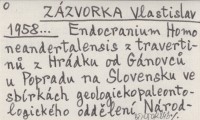 ZÁZVORKA Vlastislav
1958... Endocranium Homo
neandertalensis z traverti-
nů z Hrádku od Gánovců
u Popradu na Slovensku ve
sbírkách geologickopaleonto-
logického oddělení Národ-